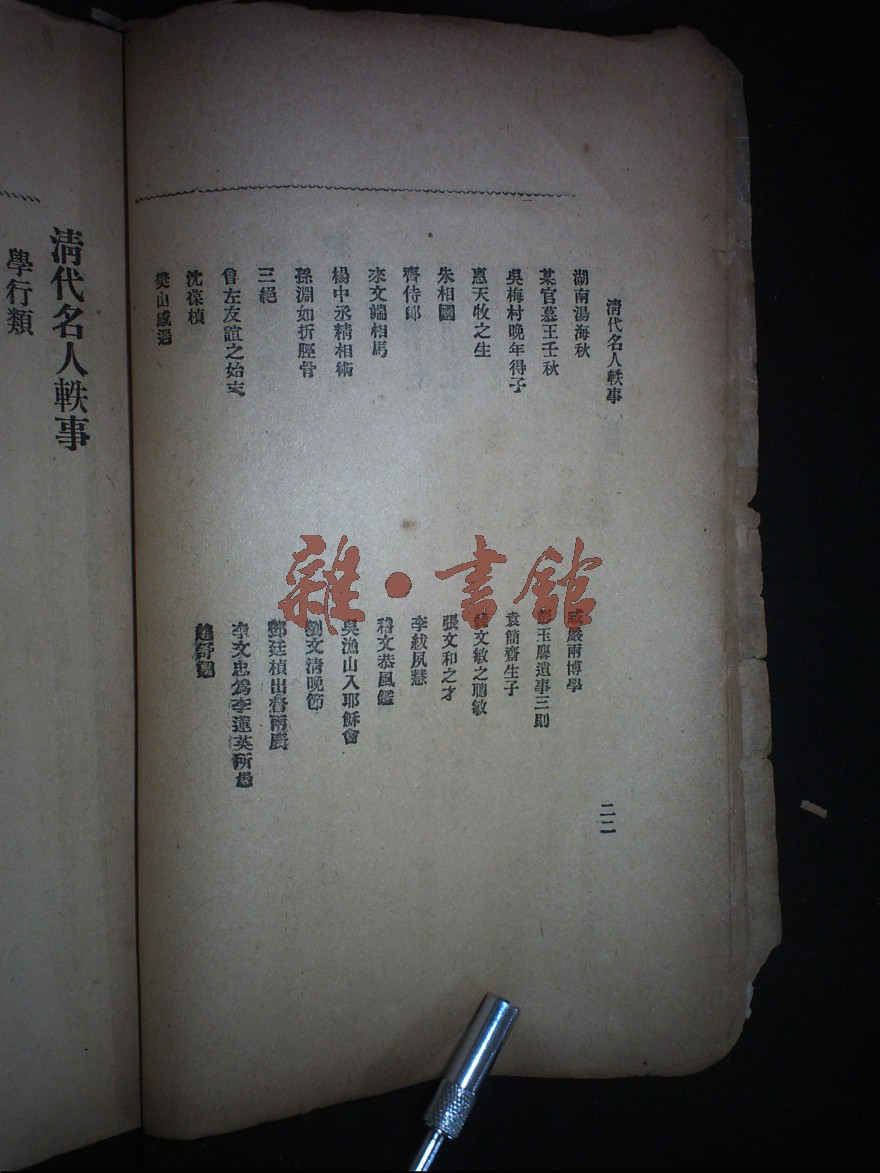 清代名人軼事
湖南湯海秋
某官慕王壬秋
吳梅村晚年得子
惠天牧之生
朱相國
齊侍郎
來文端相馬
楊中丞精相術
孫淵如折脛骨
三絕
曾左友誼之始末
沈葆楨
樊山感遇
嚴兩博學
玉麐遺事三則
袁簡齋生子
文敏之聰敏
張文和之才
李紱夙慧
文恭風鑑
吳漁山入耶穌會
劉文清晚節
鄧廷楨出督兩廣
李文忠為李蓮英所愚
趙舒翹
二二
清代名人軼事
學行類
雜·書館